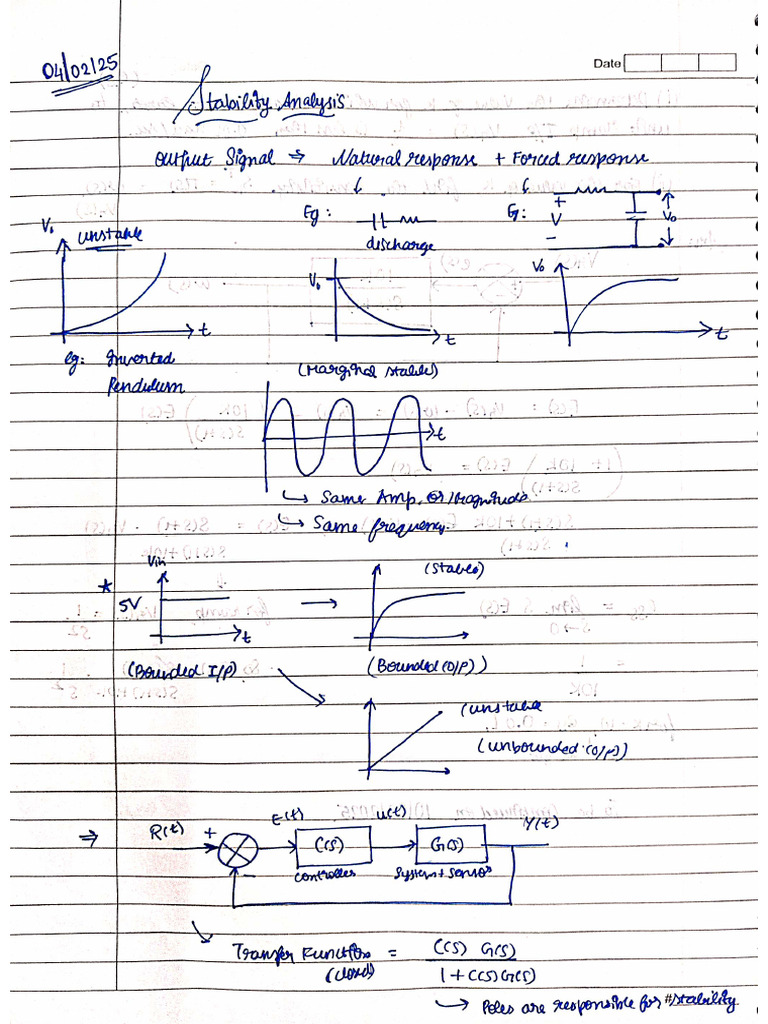 04/02/25
Date
Stability Analysis
Output Signal ⇒ Natural response + Forced response
Eg:
discharge
Eg:
+
V
-
Vo
V.
unstable
t
eg: Inverted
Pendulum
V.
t
(Marginal stable)
Vo
t
t
↳ Same Amp. or Magnitude
↳ Same frequency
*
Vin
5V
t
(Bounded I/P)
→
(Stable)
(Bounded (O/P))
(unstable
(unbounded (O/P)
⇒
R(t)
+
-
E(t)
C(s)
controller
u(t)
G(s)
System + Sensor
Y(t)
Transfer Function = C(s) G(s)
(closed)
1 + C(s)G(s)
→ Poles are responsible for #stability